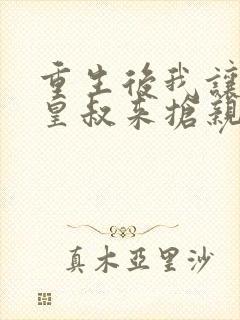 重生後我讓
皇叔来搶親
真木亞里沙